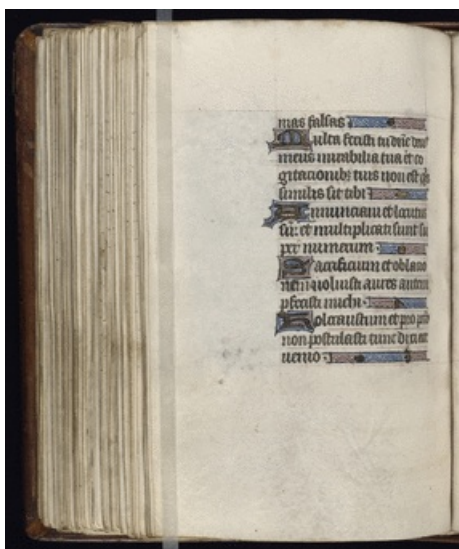 mas falsas
Multa fecisti tu dñe deus
meus mirabilia tua et co
gitacionibꝫ tuis non est qͥ
similis sit tibi
Annunciaui et locutus
sū: et multiplicati sunt su
per numerum
Sacrificium et oblacio
nem noluisti aures autem
ꝑfecisti michi
Holocaustum et pro
non postulasti tunc dixi ecce
uenio